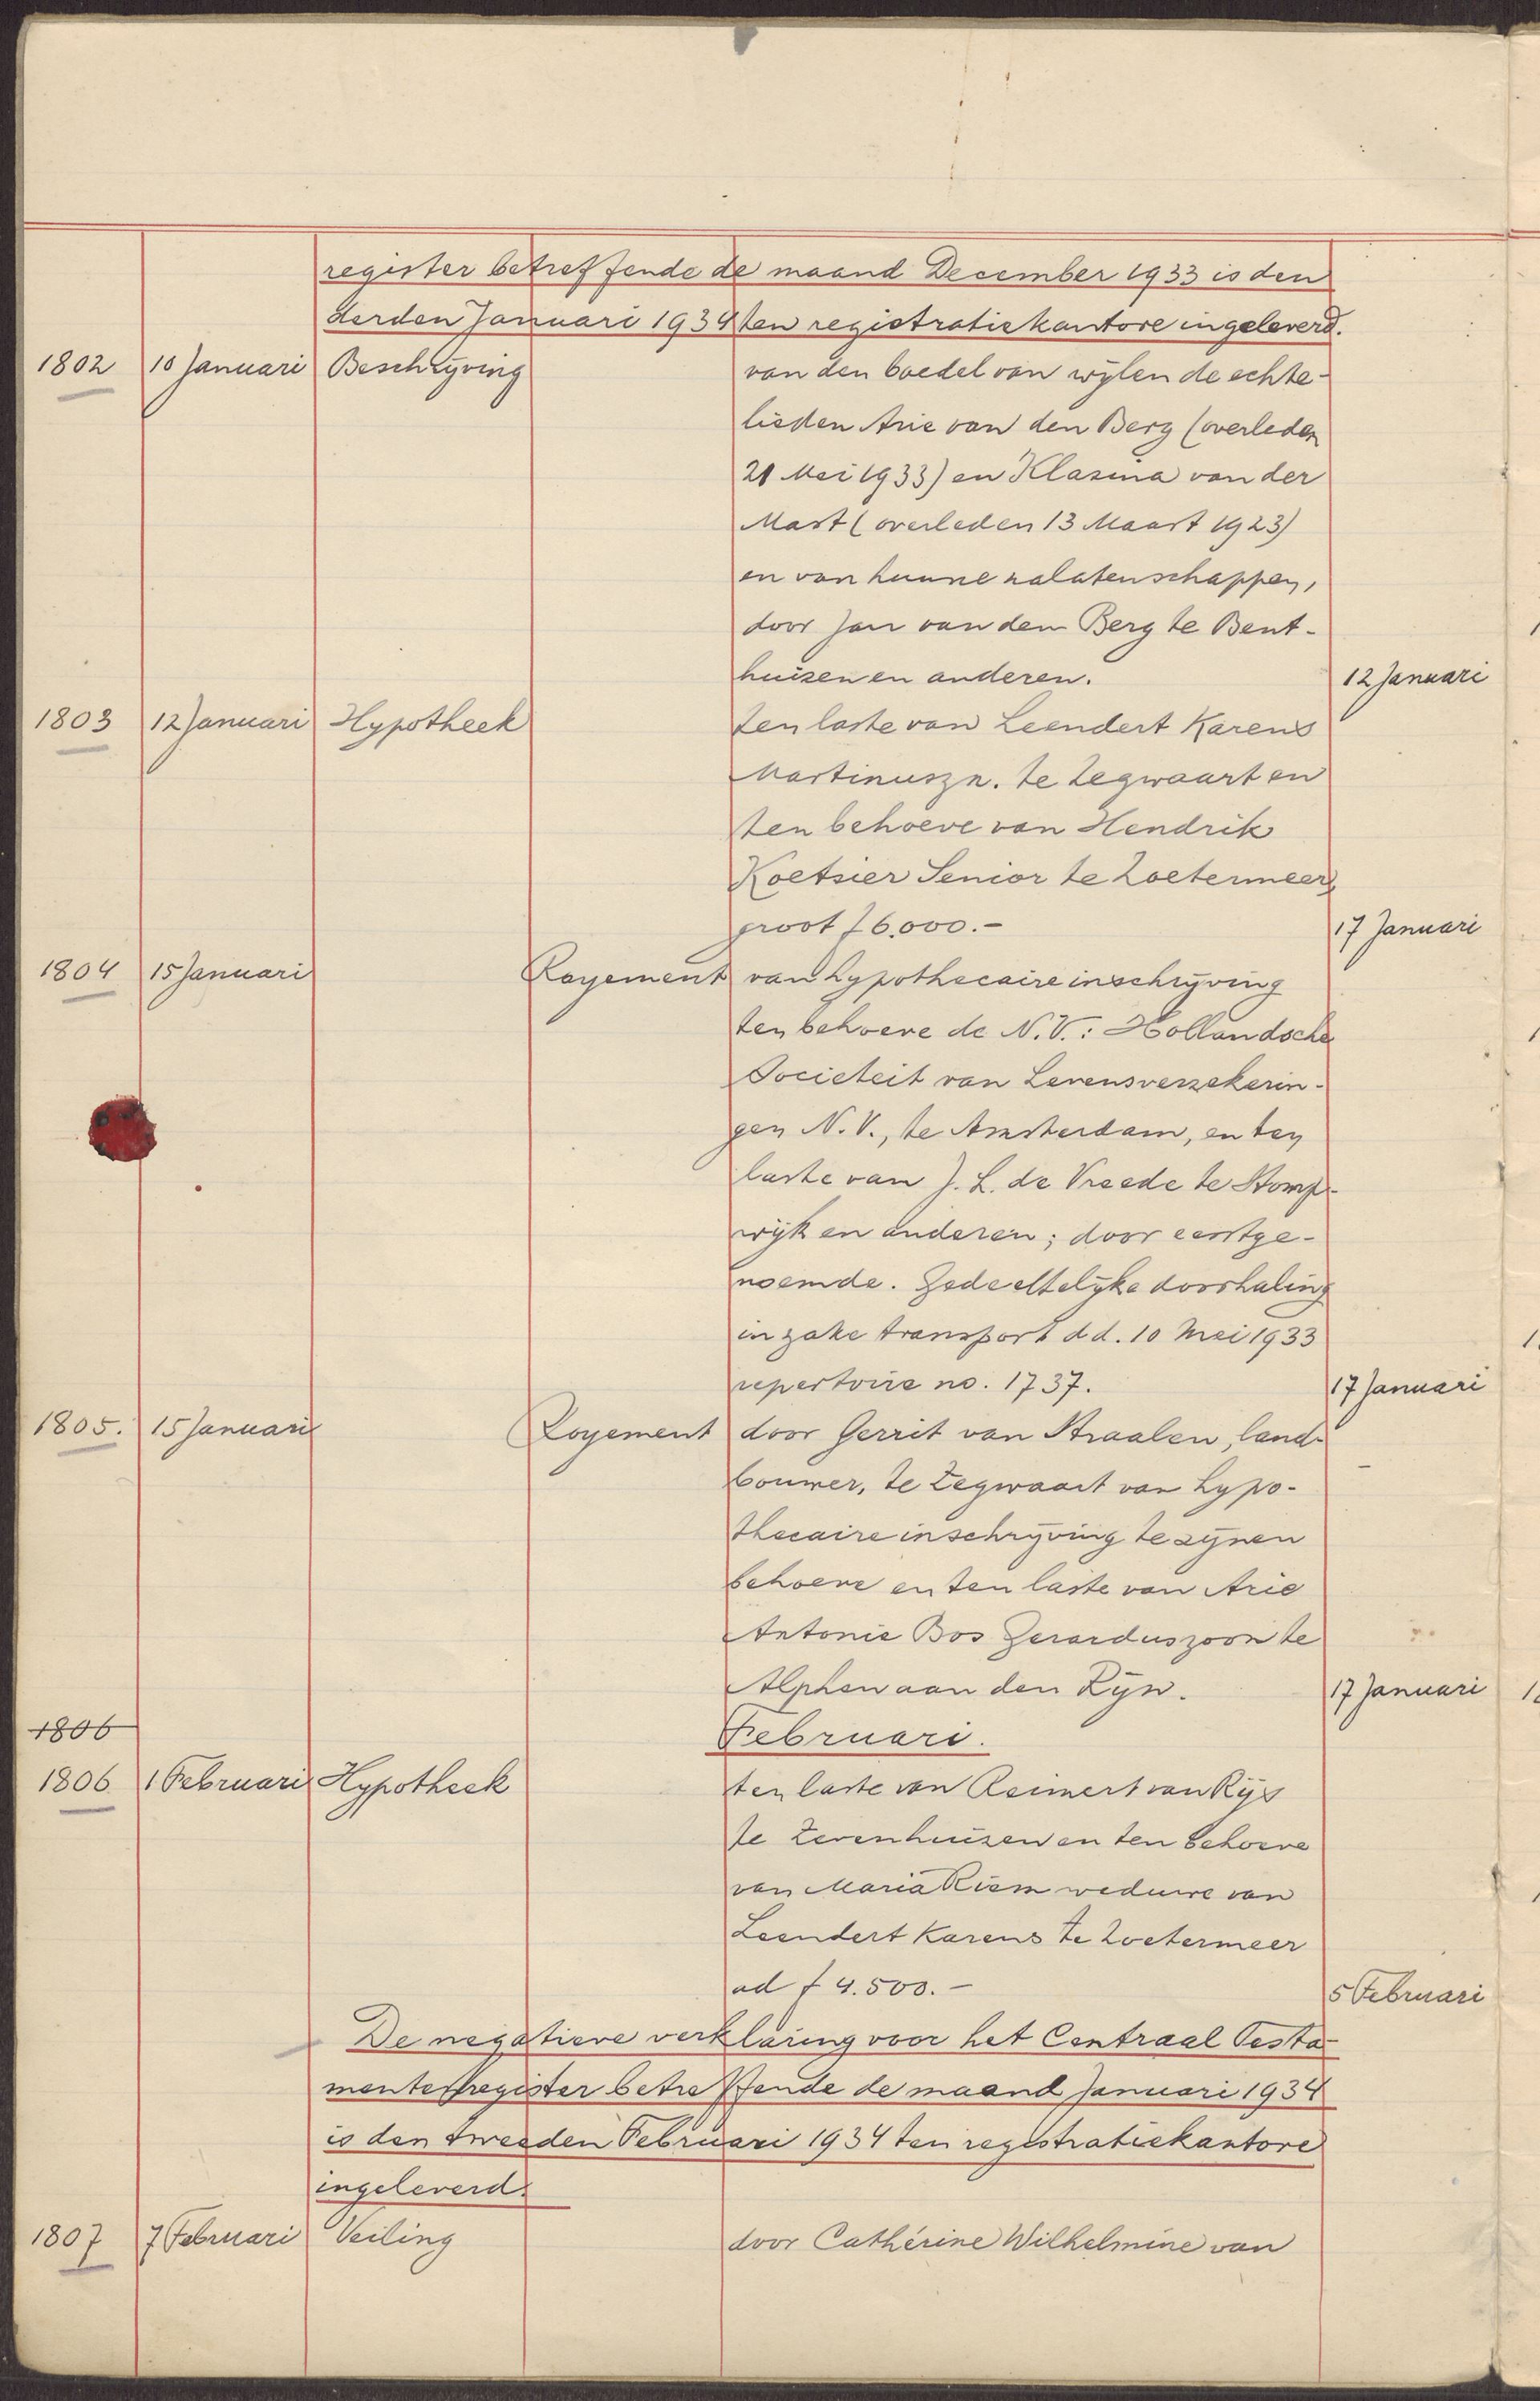 register betreffende de maand December 1933 is den
derden Januari 1934 ten registratiekantore ingeleverd.
1802 10 Januari Beschrijving van den boedel van wijlen de echte-
lieden Arie van den Berg (overleden
21 Mei 1933) en Klasina van der
Mast (overleden 13 Maart 1923)
en van hunne nalatenschappen,
door Jan van den Berg te Bent-
huizen en anderen. 12 Januari
1803 12 Januari Hypotheek ten laste van Leendert Karens
Martinuszn. te Zegwaart en
ten behoeve van Hendrik
Koetsier Senior te Zoetermeer,
groot f 6.000.-  17 Januari
1804 15 Januari Royement van hypothecaire inschrijving
ten behoeve de N.V.: Hollandsche
Societeit van Levensverzekerin-
gen N.V., te Amsterdam, en ten
laste van J. L. de Vreede te Stomp-
wijk en anderen; door eerstge-
noemde. Gedeeltelijke doorhaling
in zake transport d.d. 10 Mei 1933
repertoire no. 1737. 17 Januari
1805. 15 Januari Royement door Gerrit van Straalen, land-
bouwer, te Zegwaart van hypo-
thecaire inschrijving te zijnen
behoeve en ten laste van Arie
Antonie Bos Gerarduszoon te
Alphen aan den Rijn. 17 Januari
1806 Februari.
1806 1 Februari Hypotheek ten laste van Reimert van Rijs
te Zevenhuizen en ten behoeve
van Maria Riem weduwe van
Leendert Karens te Zoetermeer
ad f 4.500.- 5 Februari
De negatieve verklaring voor het Centraal Testa-
mentenregister betreffende de maand Januari 1934
is den tweeden Februari 1934 ten registratiekantore
ingeleverd.
1807 7 Februari Veiling door Cathérine Wilhelmine van